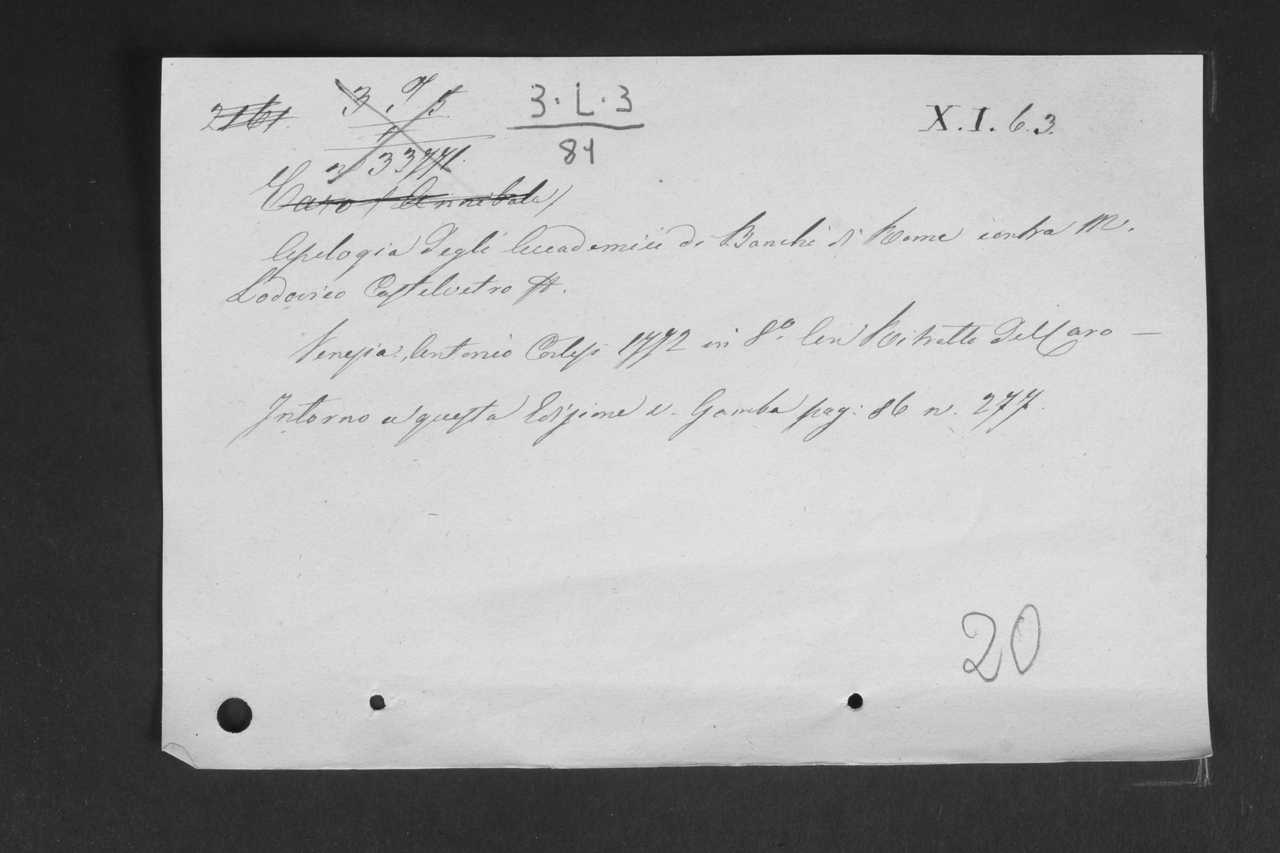 2161. 3. 9/5 3.L.3 X.I.6.3.
84
n 33771.
Caro (Annibale)
Apologia degli Accademici di Banchi di Roma contra M.
Lodovico Castelvetro
Venezia, Antonio Cortesi 1772 in 8.º Con Ritratto del Caro —
Intorno a questa Edizione v. Gamba pag: 86 n. 277.
20